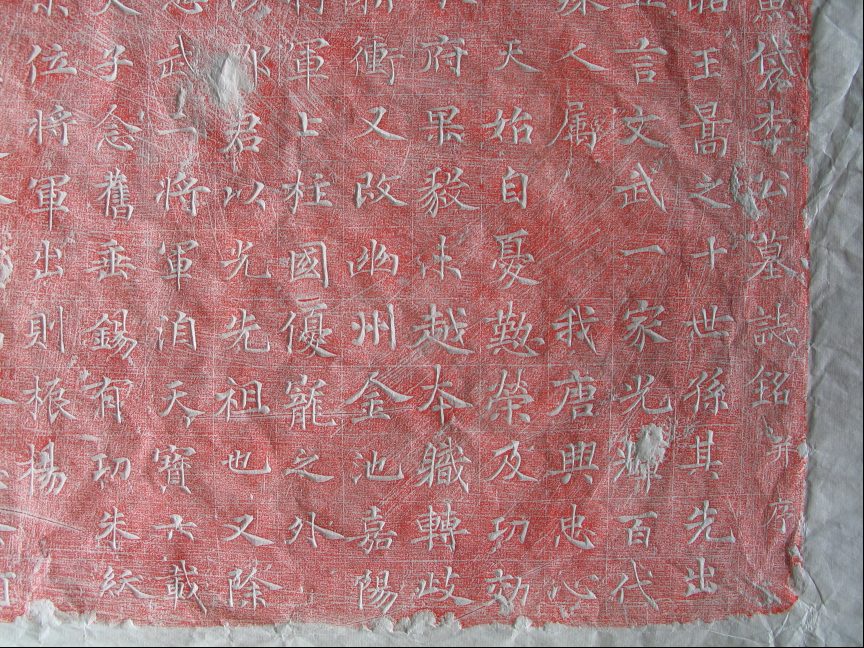 魚袋李公墓誌銘并序
昭王暠之十世孫其先出
言文武一家光輝百代
人属我唐興忠心
天始自憂勤榮及功効
府果毅未越本職轉歧
衝又改幽州金池嘉陽
軍上柱國優寵之外
君以光先祖也又除
武將軍洎天寶六載
子念舊垂錫有功朱紱
位將軍出則振楊